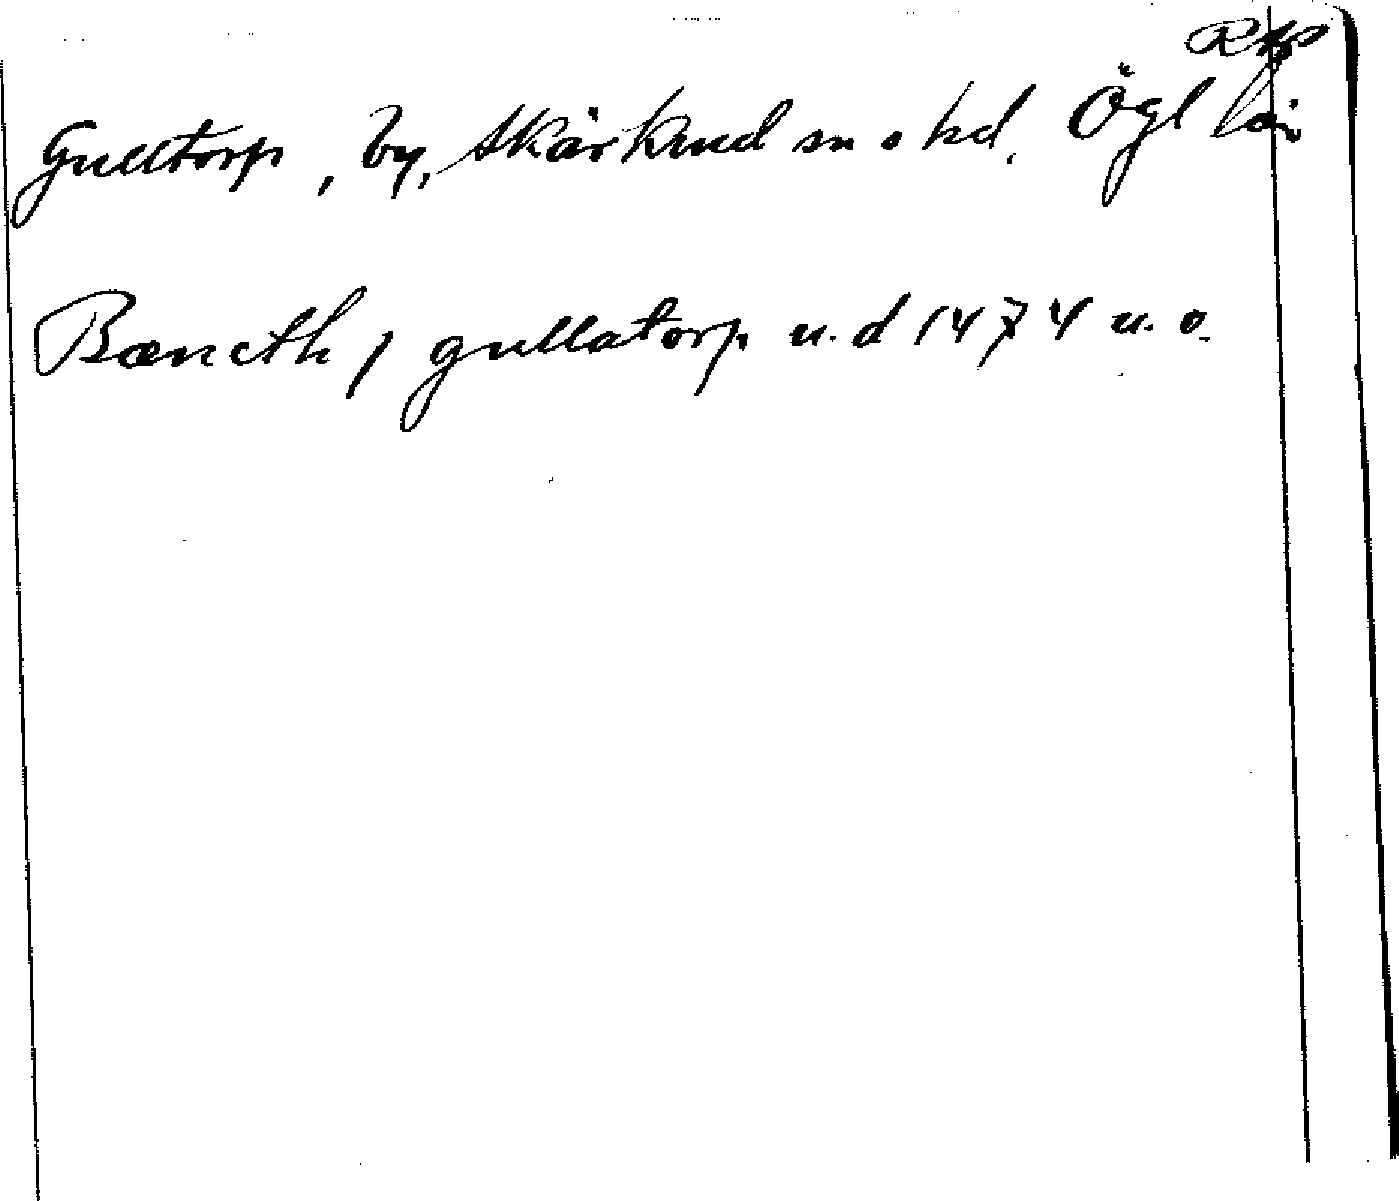 Rkp
Gulltorp, by, Skärkind sn o hd. Ögl län
Bæncth j gullatorp u.d 1474 u. o.